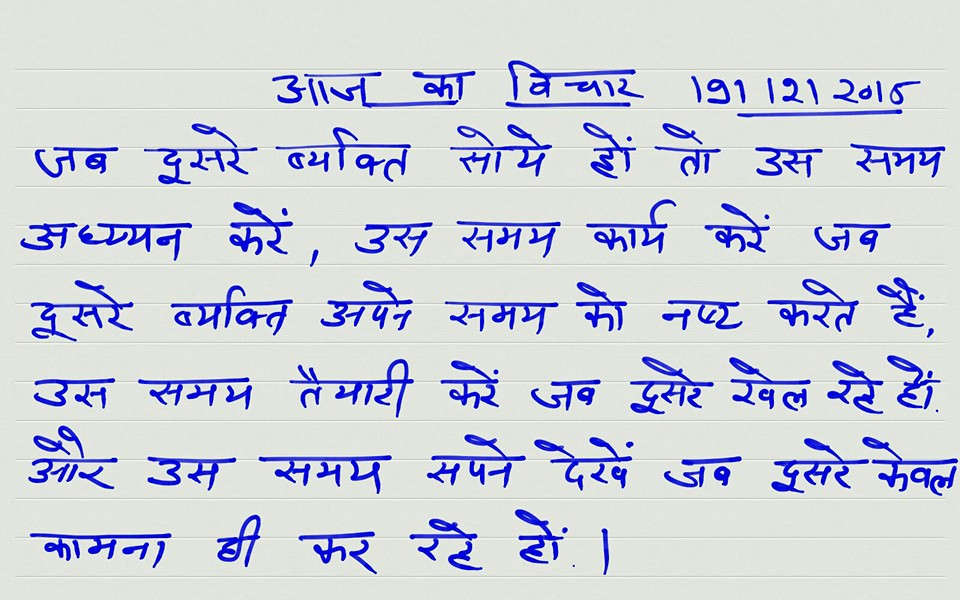 आज का विचार 19/12/2015
जब दूसरे व्यक्ति सोये हों तो उस समय
अध्ययन करें, उस समय कार्य करें जब
दूसरे व्यक्ति अपने समय को नष्ट करते हैं,
उस समय तैयारी करें जब दूसरे खेल रहे हों.
और उस समय सपने देखें जब दूसरे केवल
कामना ही कर रहे हों.।